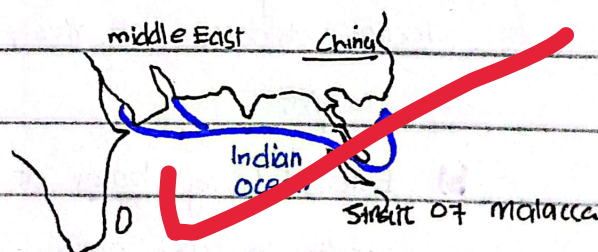 middle East
China
Indian
ocean
Strait of malacca